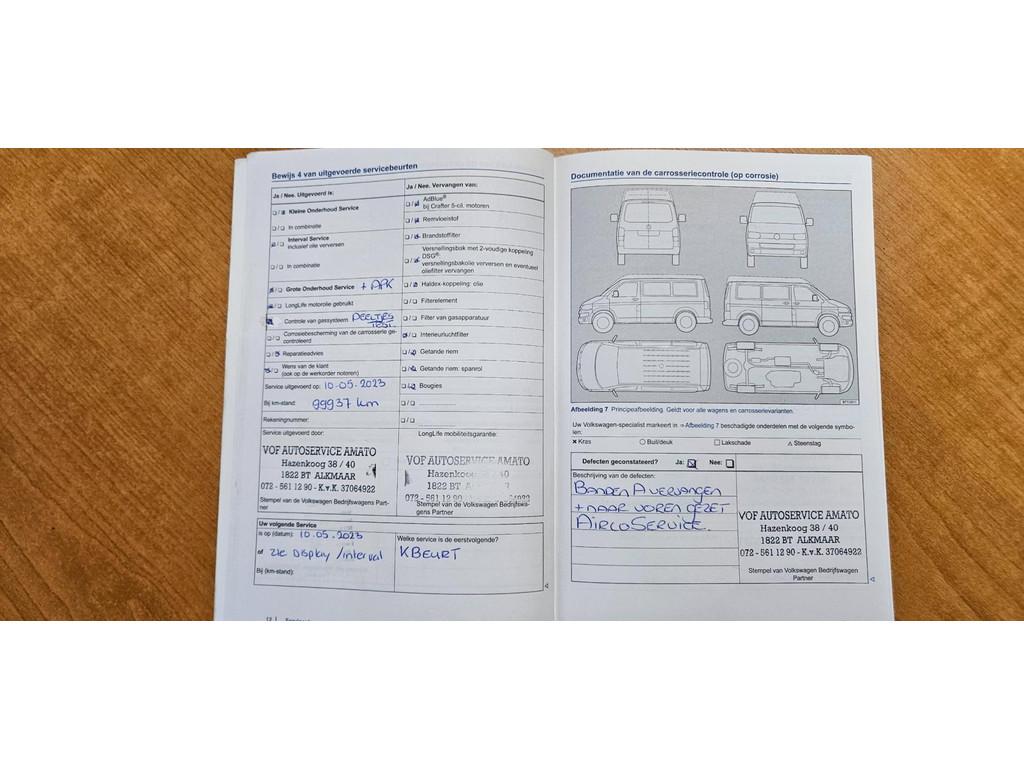 Bewijs 4 van uitgevoerde servicebeurten
Ja / Nee. Uitgevoerd is:
Kleine Onderhoud Service
In combinatie
Interval Service
inclusief olie verversen
In combinatie
Grote Onderhoud Service + APK
LongLife motorolie gebruikt
Controle van gassysteem DEELTJES
TEST.
Corrosiebescherming van de carrosserie ge-
controleerd
Reparatieadvies
Wens van de klant
(ook op de werkorder noteren)
Service uitgevoerd op: 10-05-2023
Bij km-stand: 99937 km
Rekeningnummer:
Service uitgevoerd door:
VOF AUTOSERVICE AMATO
Hazenkoog 38 / 40
1822 BT ALKMAAR
072 - 561 12 90 - K.v.K. 37064922
Stempel van de Volkswagen Bedrijfswagens Part-
ner
Ja / Nee. Vervangen van:
AdBlue®
bij Crafter 5-cil. motoren
Remvloeistof
Brandstoffilter
Versnellingsbak met 2-voudige koppeling
DSG®:
versnellingsbakolie verversen en eventueel
oliefilter vervangen
Haldex-koppeling: olie
Filterelement
Filter van gasapparatuur
Interieurluchtfilter
Getande riem
Getande riem: spanrol
Bougies
LongLife mobiliteitsgarantie:
VOF AUTOSERVICE AMATO
Hazenkoog 40
1822 BT A
072 - 561 12 90
Stempel van de Volkswagen Bedrijfswa-
gens Partner
Uw volgende Service
is op (datum): 10.05.2023
of zie Display / interval
Bij (km-stand):
Welke service is de eerstvolgende?
KBEURT
Documentatie van de carrosseriecontrole (op corrosie)
Afbeelding 7 Principeafbeelding. Geldt voor alle wagens en carrosserievarianten.
Uw Volkswagen-specialist markeert in ⇒Afbeelding 7 beschadigde onderdelen met de volgende symbo-
len:
× Kras Buil/deuk Lakschade Steenslag
Defecten geconstateerd? Ja: Nee:
Beschrijving van de defecten:
BANDEN A VERVANGEN
+ NAAR VOREN GEZET
AIRCOSERVICE.
VOF AUTOSERVICE AMATO
Hazenkoog 38 / 40
1822 BT ALKMAAR
072 - 561 12 90 - K.v.K. 37064922
Stempel van de Volkswagen Bedrijfswagen
Partner